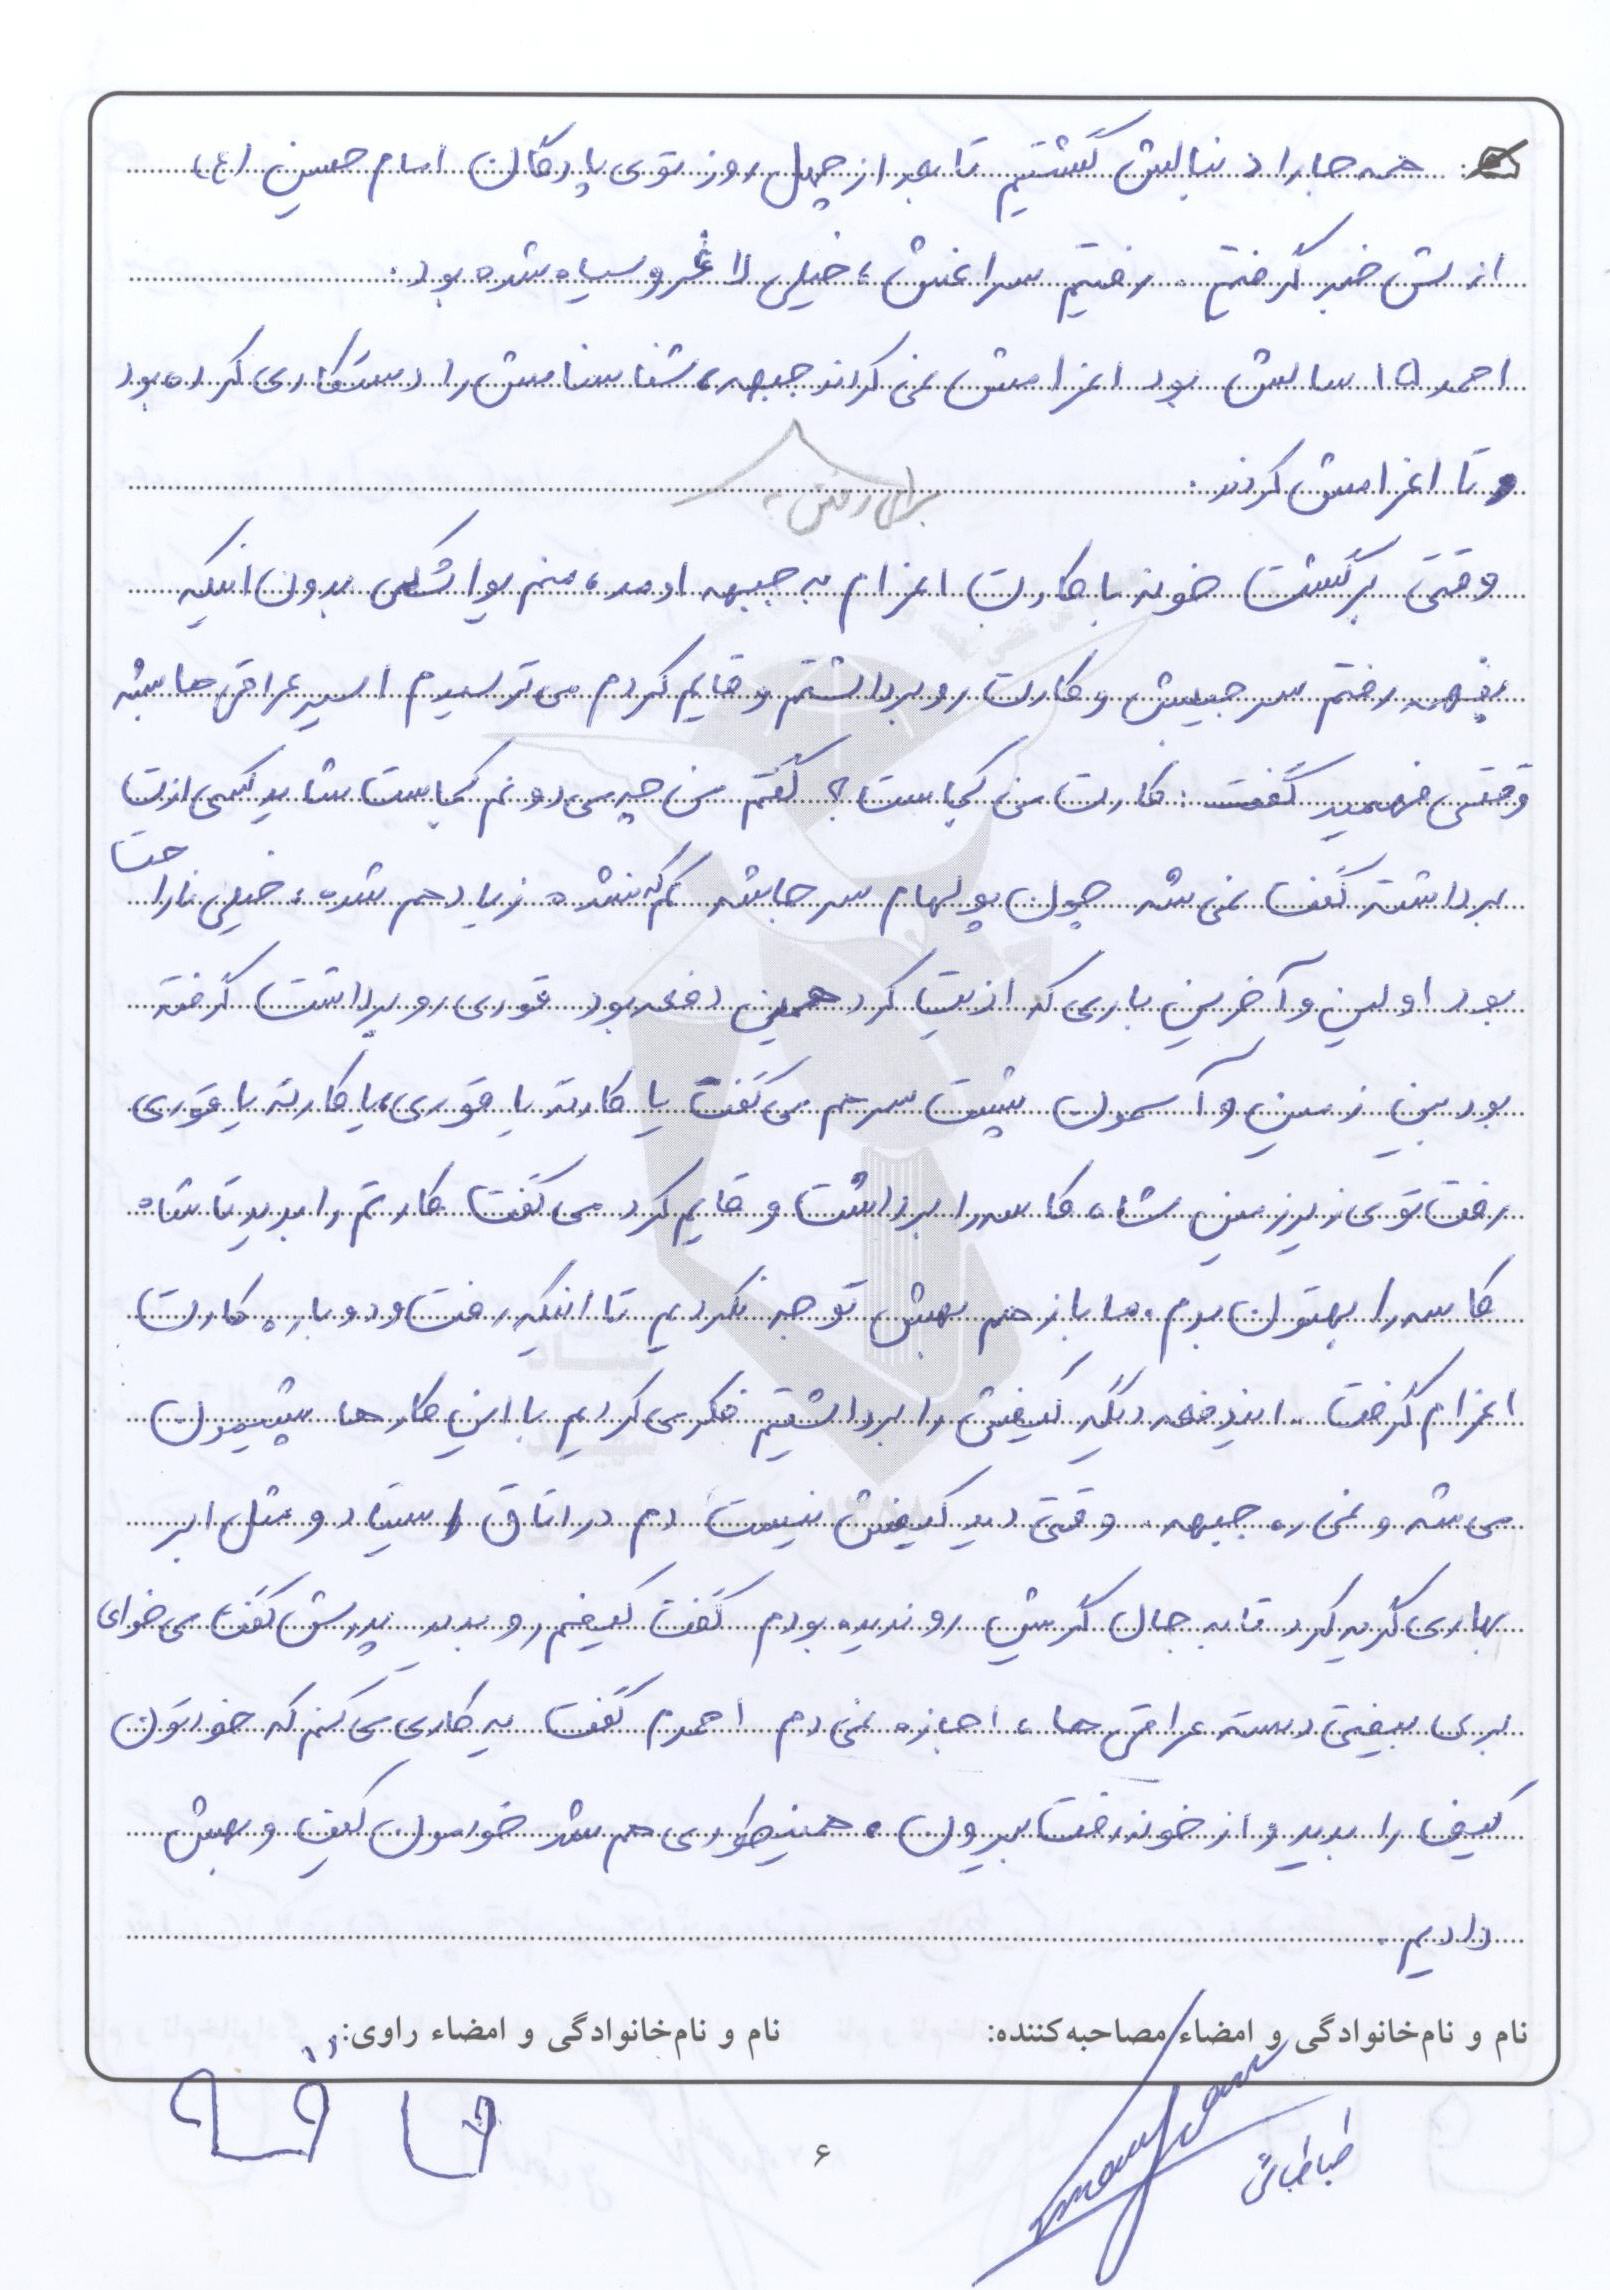 همه جا را دنبالش گشتیم تا بعد از چهل روز توی پادگان امام حسین (ع)
ازش خبر گرفتیم. رفتیم سراغش، خیلی لاغر و سیاه شده بود.
احمد ۱۵ سالش بود اعزامش نمی کردند جبهه، شناسنامش را دستکاری کرده بود
و تا اعزامش کردند.
برای رفتن به
وقتی برگشت خونه با کارت اعزام به جبهه اومد، منم یواشکی بدون اینکه
بفهمه رفتم سر جیبش و کارت رو برداشتم و قایم کردم می ترسیدم اسیر عراقی ها بشه
وقتی فهمید گفت: کارت من کجاست؟ گفتم من چه می دونم کجاست شاید کسی ازت
برداشته گفت نمی شه چون پولهام سر جاشه کم که نشده زیاد هم شده، خیلی ناراحت
بود اولین و آخرین باری که اذیت کرد همین دفعه بود قوری رو برداشت گرفته
بود بین زمین و آسمون پشت سر هم می گفت یا کارته یا قوری، یا کارته یا قوری
رفت توی زیرزمین شاه کاسه را برداشت و قایم کرد می گفت کارتم را بدید تا شاه
کاسه را بهتون بدم. ما باز هم بهش توجه نکردیم تا اینکه رفت و دوباره کارت
اعزام گرفت. ایندفعه دیگه کیفش را برداشتیم فکر می کردیم با این کارها پشیمون
می شه و نمی ره جبهه. وقتی دید کیفش نیست دم در اتاق استاد و مثل ابر
بهاری گریه کرد تا به حال گریش رو ندیده بودم گفت کیفم رو بدید پدرش گفت می خوای
بری بیفتی دسته عراقی ها، اجازه نمی دم احمدم گفت یه کاری می کنم که خودتون
کیف را بدید و از خونه رفت بیرون. همینطوری هم شد خودمون کیف و بهش
دادیم.
نام و نام‌خانوادگی و امضاء مصاحبه‌کننده:
نام و نام‌خانوادگی و امضاء راوی:
طباطبائی
۶